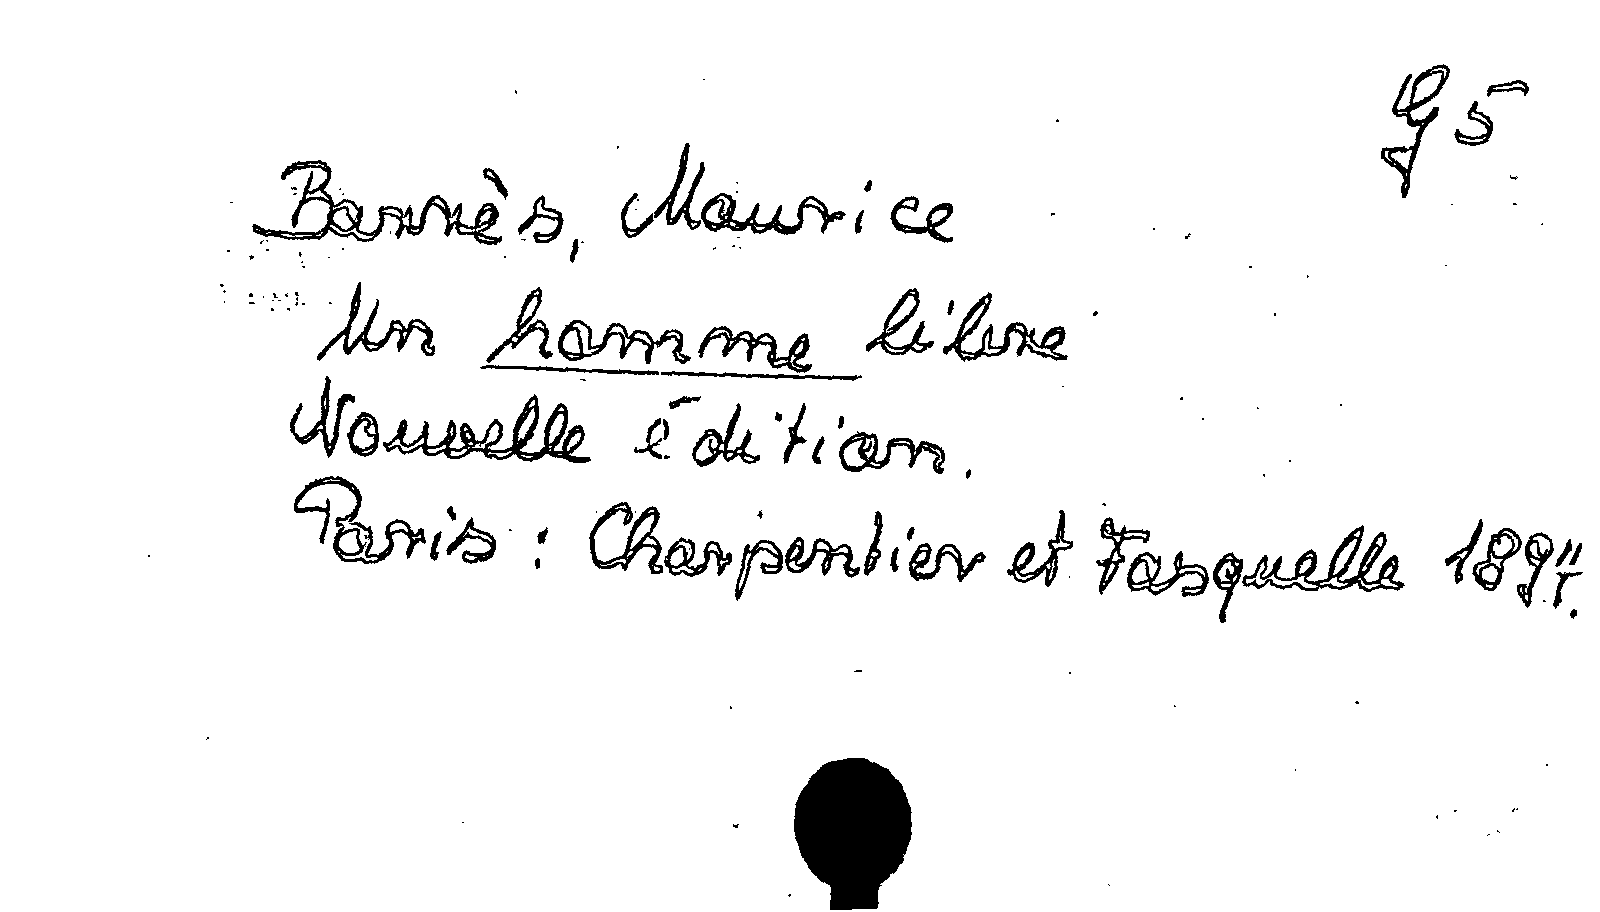 G 5
Barrès, Maurice
Un homme libre
Nouvelle édition.
Paris: Charpentier et Fasquelle